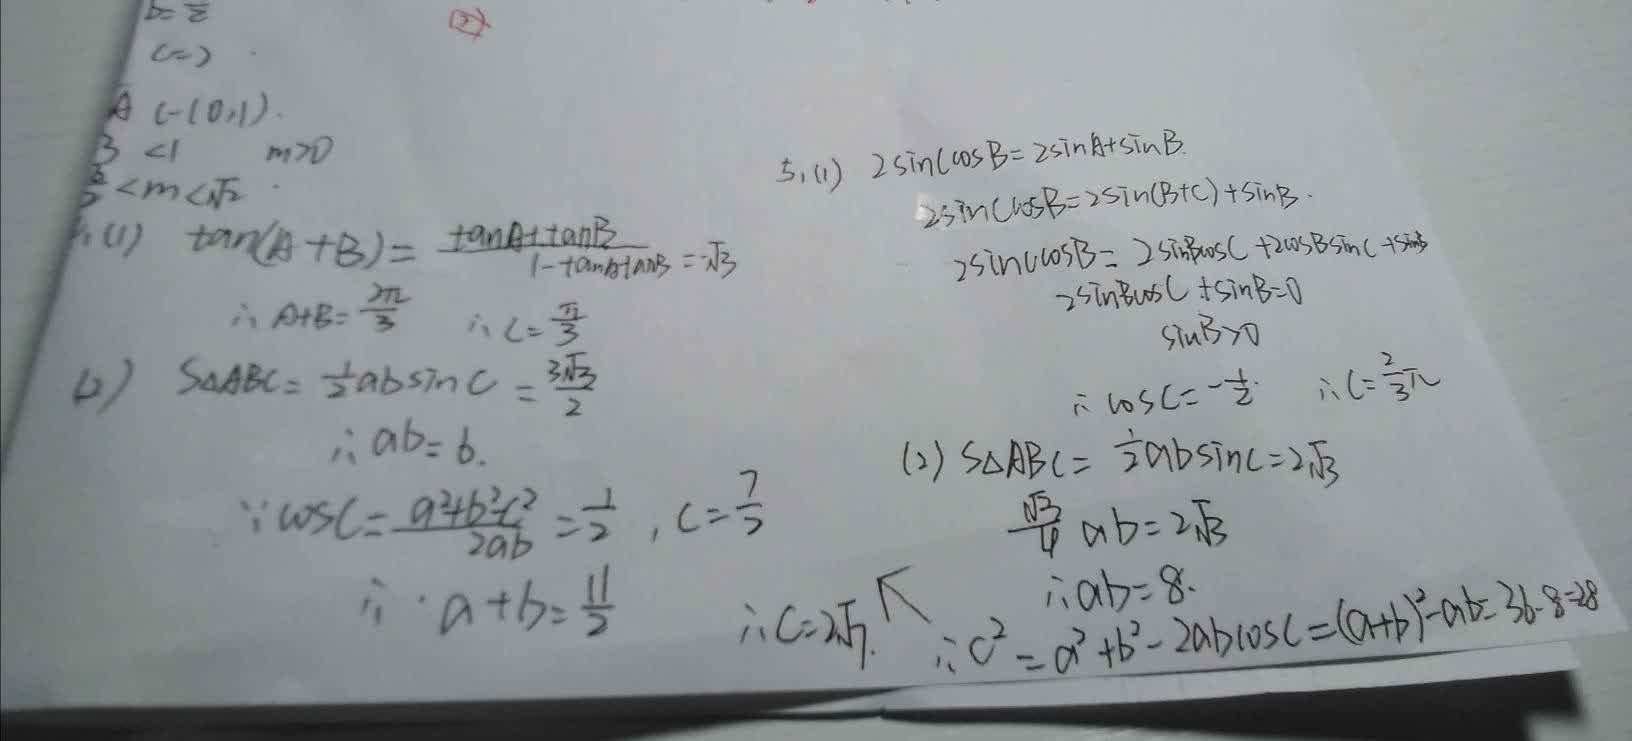 b=
②
A C-(0,1).
<1 m>0
<m<√2
(1) tan(A+B)= (tanA+tanB)/(1-tanAtanB) =-√3
∴ A+B=2π/3 ∴ C=π/3
(2) S△ABC=1/2absinC=3√3/2
∴ab=6.
∵cosC=(a²+b²-c²)/2ab=1/2, C=7/2
∴ a+b=11/2
5,(1) 2sinCcosB=2sinA+sinB.
2sinCcosB=2sin(B+C)+sinB.
2sinCcosB=2sinBcosC+2cosBsinC+sinB
2sinBcosC+sinB=0
sinB>0
∴ cosC=-1/2. ∴C=2/3π
(2) S△ABC=1/2absinC=2√3
√3/4 ab=2√3
∴ab=8.
∴c²=a²+b²-2abcosC=(a+b)²-ab=36-8=28
∴C=2√7.